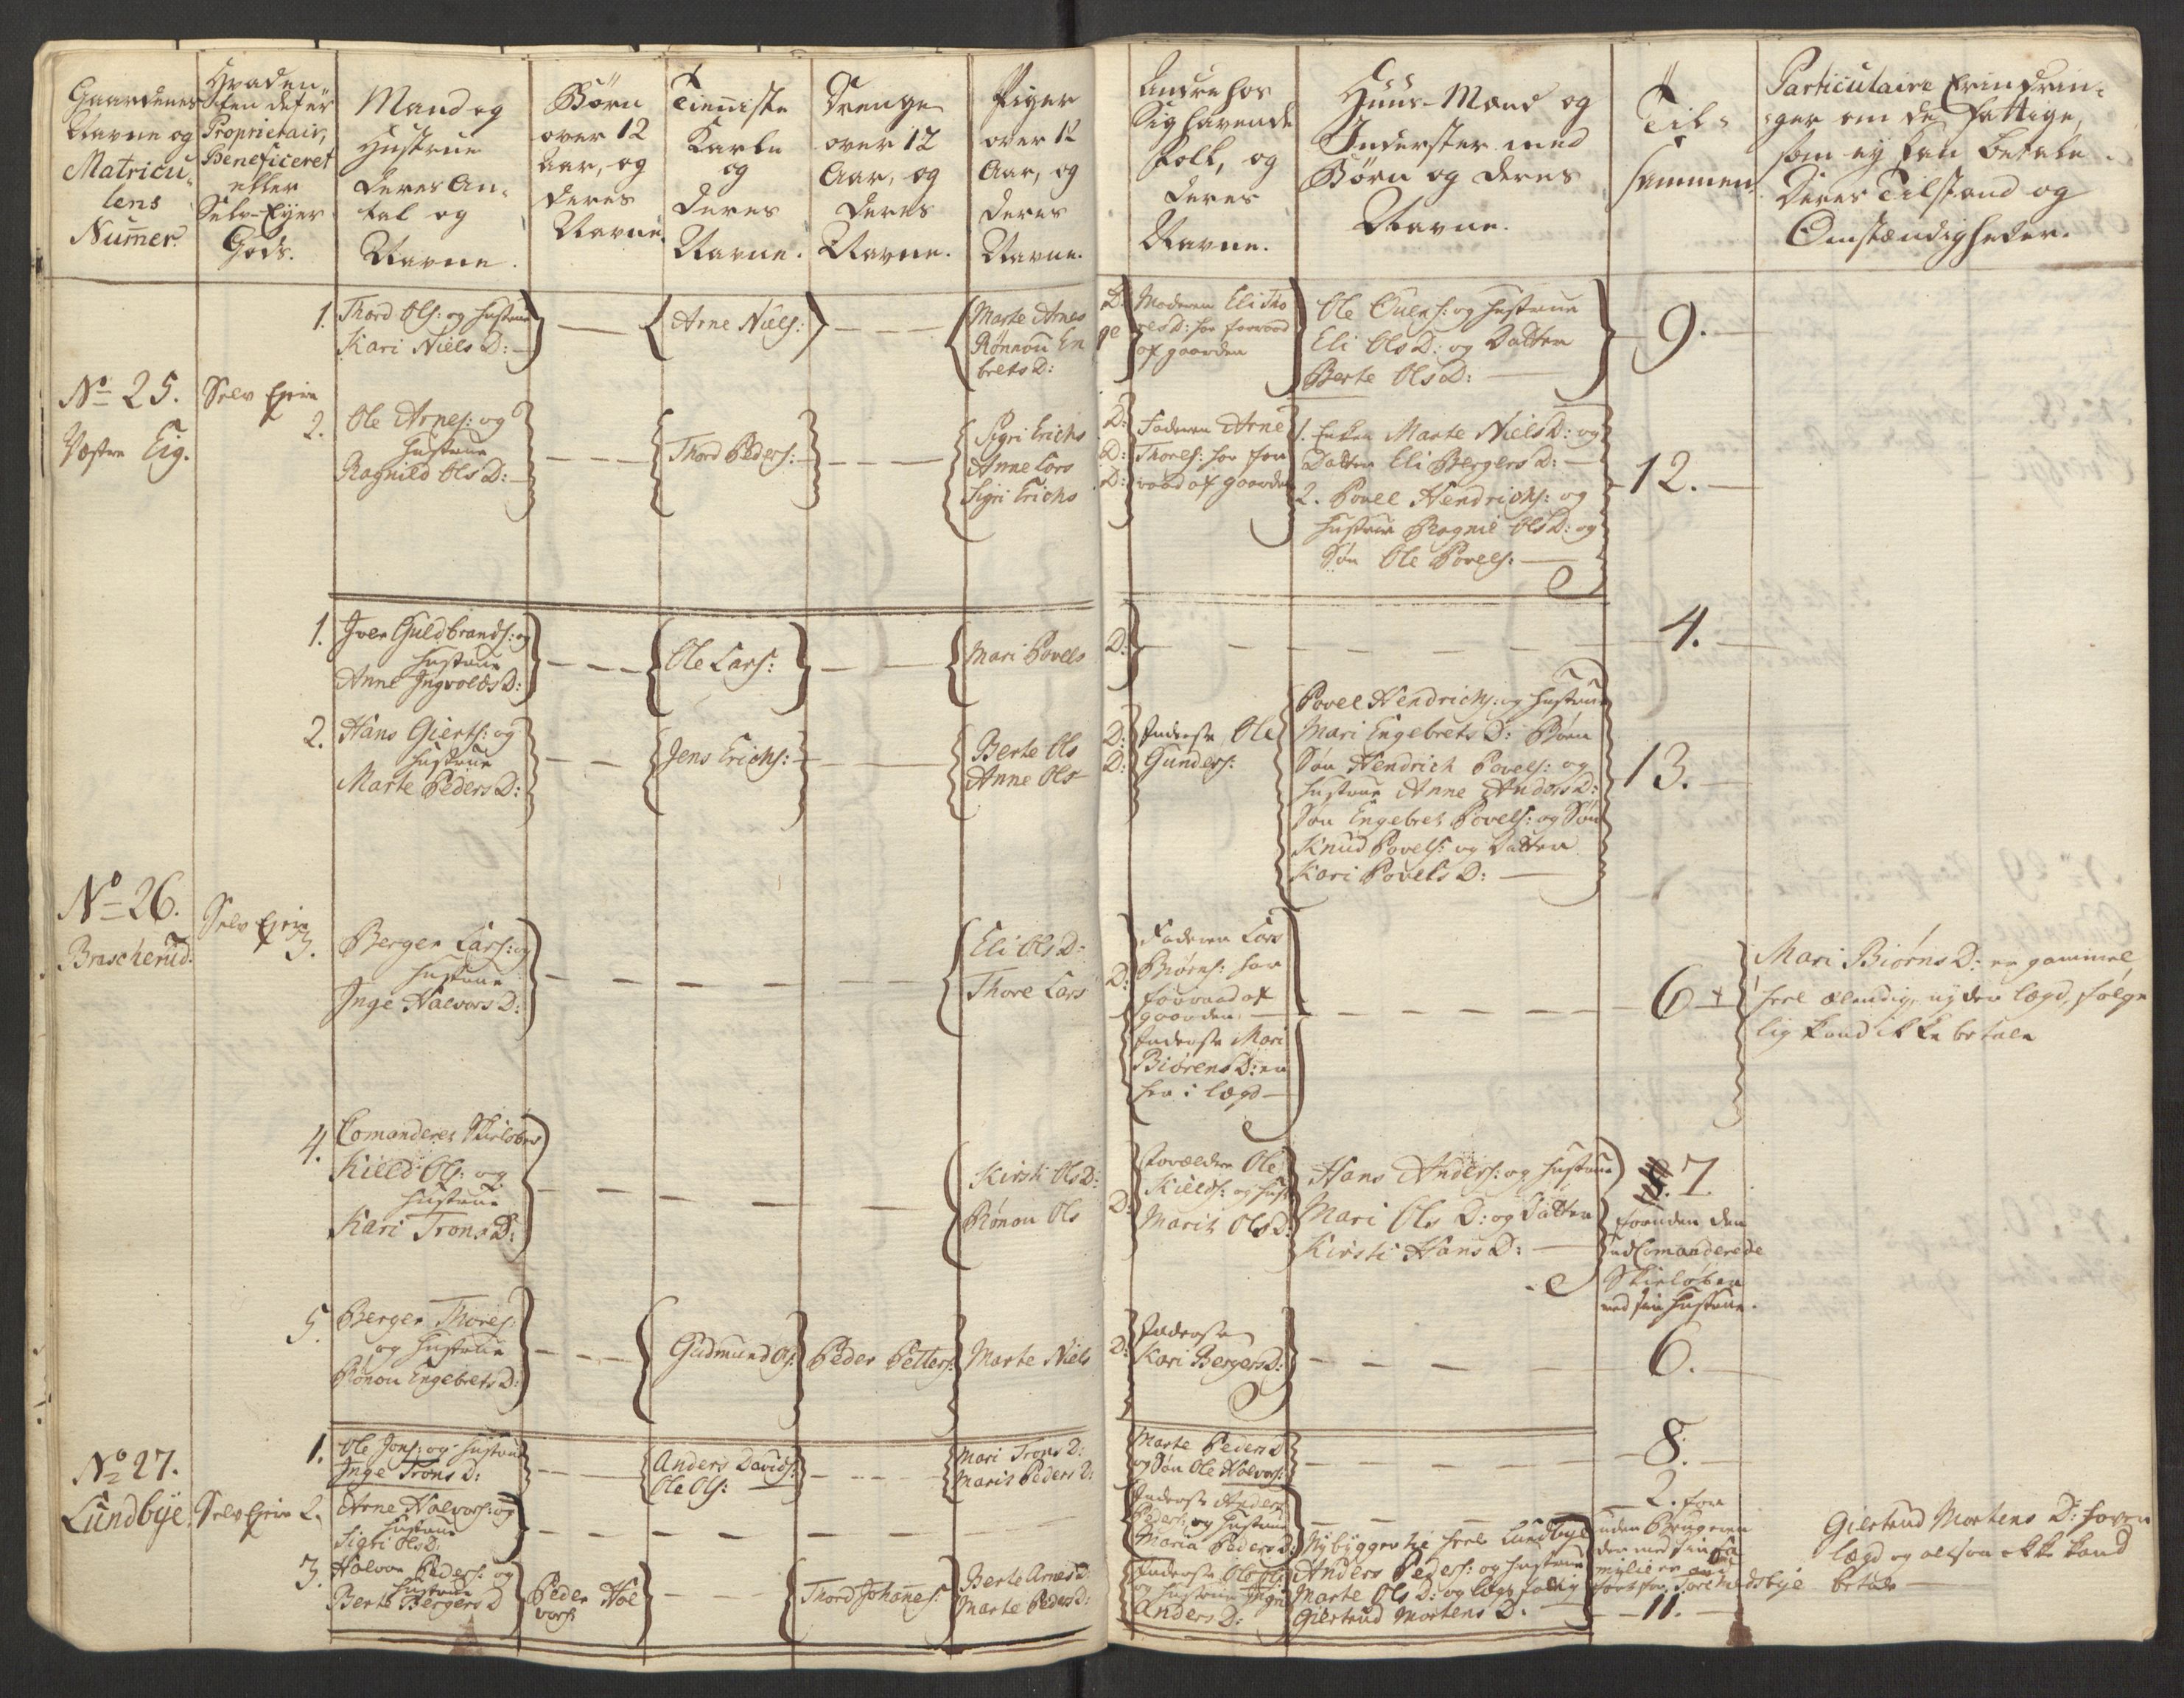 Gaardenes
Navne og
Matricu-
lens
Nummer.
Hvad en-
ten det er
Proprietair,
Beneficeret
eller
Selv-Eyer
Gods.
Mand og
Hustrue
deres An-
tal og
Navne.
Børn
over 12
Aar, og
deres
Navne.
Tienniste
Karle
og
deres
Navne.
Drenge
over 12
Aar, og
deres
Navne.
Piger
over 12
Aar, og
deres
Navne.
Andre hos
Sig havende
Folk, og
deres
Navne.
Huus-Mænd og
Inderster med
Børn og deres
Navne.
Til-
sammen.
Particulaire Erindrin-
ger om de fattige,
som ey kan betale
deres Tilstand og
Omstændigheder.
No 25.
Vestre Eig.
Selv Ejere
1. Thord Ols: og hustrue
Kari Niels D:
Arne Niels:
Marte Arnes D:
Rønnou En ge
brets D:
Moderen Eli Tho
res D: har forraad
af gaarden
Ole Ouens: og hustrue
Eli Ols D: og Datter
Berte Ols D:
9.
2. Ole Arnes: og
hustrue
Ragnild Ols D:
Thord Peders:
Sigri Erichs D:
Anne Lars D:
Sigri Erichs D:
Faderen Arne
Thores: har for
raad af gaarden
1. Enken Marte Niels D: og
Datter Eli Bergers D:
2. Povel Hendrichs: og
hustrue Ragnil Ols D: og
Søn Ole Povels:
12.
No 26.
Brascherud.
Selv Ejere
1. Iver Guldbrands: og
hustrue
Anne Ingvolds D:
Ole Lars:
Mari Povels D:
4.
2. Hans Gierts: og
hustrue
Marte Peders D:
Jens Erichs:
Berte Ols D:
Anne Ols D:
Inderste Ole
Gunders:
Povel Hendrichs: og hustrue
Mari Engebrets D: Børn
Søn Hendrich Povels: og
hustrue Anne Anders D:
Søn Engebret Povels: og Søn
Knud Povels: og Datter
Kari Povels D:
13.
3. Berger Lars: og
hustrue
Inge Halvors D:
Eli Ols D:
Thore Lars D:
Faderen Lars
Biørns: har
forraad af
gaarden
Inderste Mari
Biørens D: er
her i lægd
6 +
Mari Biørns D: er gammel,
heel elendig, nyder lægd, følge
lig kand ikke betale
4. Comanderet Skieløber
Kield Ols: og
hustrue
Kari Trons D:
Kirsti Ols D:
Rønou Ols D:
Forældre Ole
Kields: og hust:
Marit Ols D:
Hans Anders: og hustrue
Mari Ols D: og Datter
Kirsti Hans D:
7.
foruden den
udComanderede
Skieløber
med sin hustrue.
5. Berger Thores:
og hustrue
Rønou Engebrets D:
Gudmund Ols:
Peder Petters:
Marte Niels D:
Inderste
Kari Bergers D:
6.
No 27.
Lundbye.
Selv Ejere
1. Ole Jons: og hustrue
Inge Trons D:
Anders Davids:
Ole Ols:
Mari Trons D:
Marit Peders D:
Marte Peders D
og Søn Ole Halvors:
8.
2. Arne Halvors: og
hustrue
Sigri Ols D:
Inderste Anders
Peders: og hustrue
Maria Peders D:
2. for
uden Brugeren
der med sin fa
milie er an
ført for Torchildsbye
3. Halvor Peders: og
hustrue
Berte Bergers D
Peder Hal
vors:
Thord Johannes:
Berte Arnes D:
Marte Peders D:
Inderste Ole Ols:
og hustrue Inger
Anders D:
Nybyggere til heele Lundbye
Anders Peders: og hustrue
Marte Ols D: og lægs fattig
Giertrud Mortens D.
11.
Giertrud Mortens D: for er
lægd og altsaa ikke kand
betale